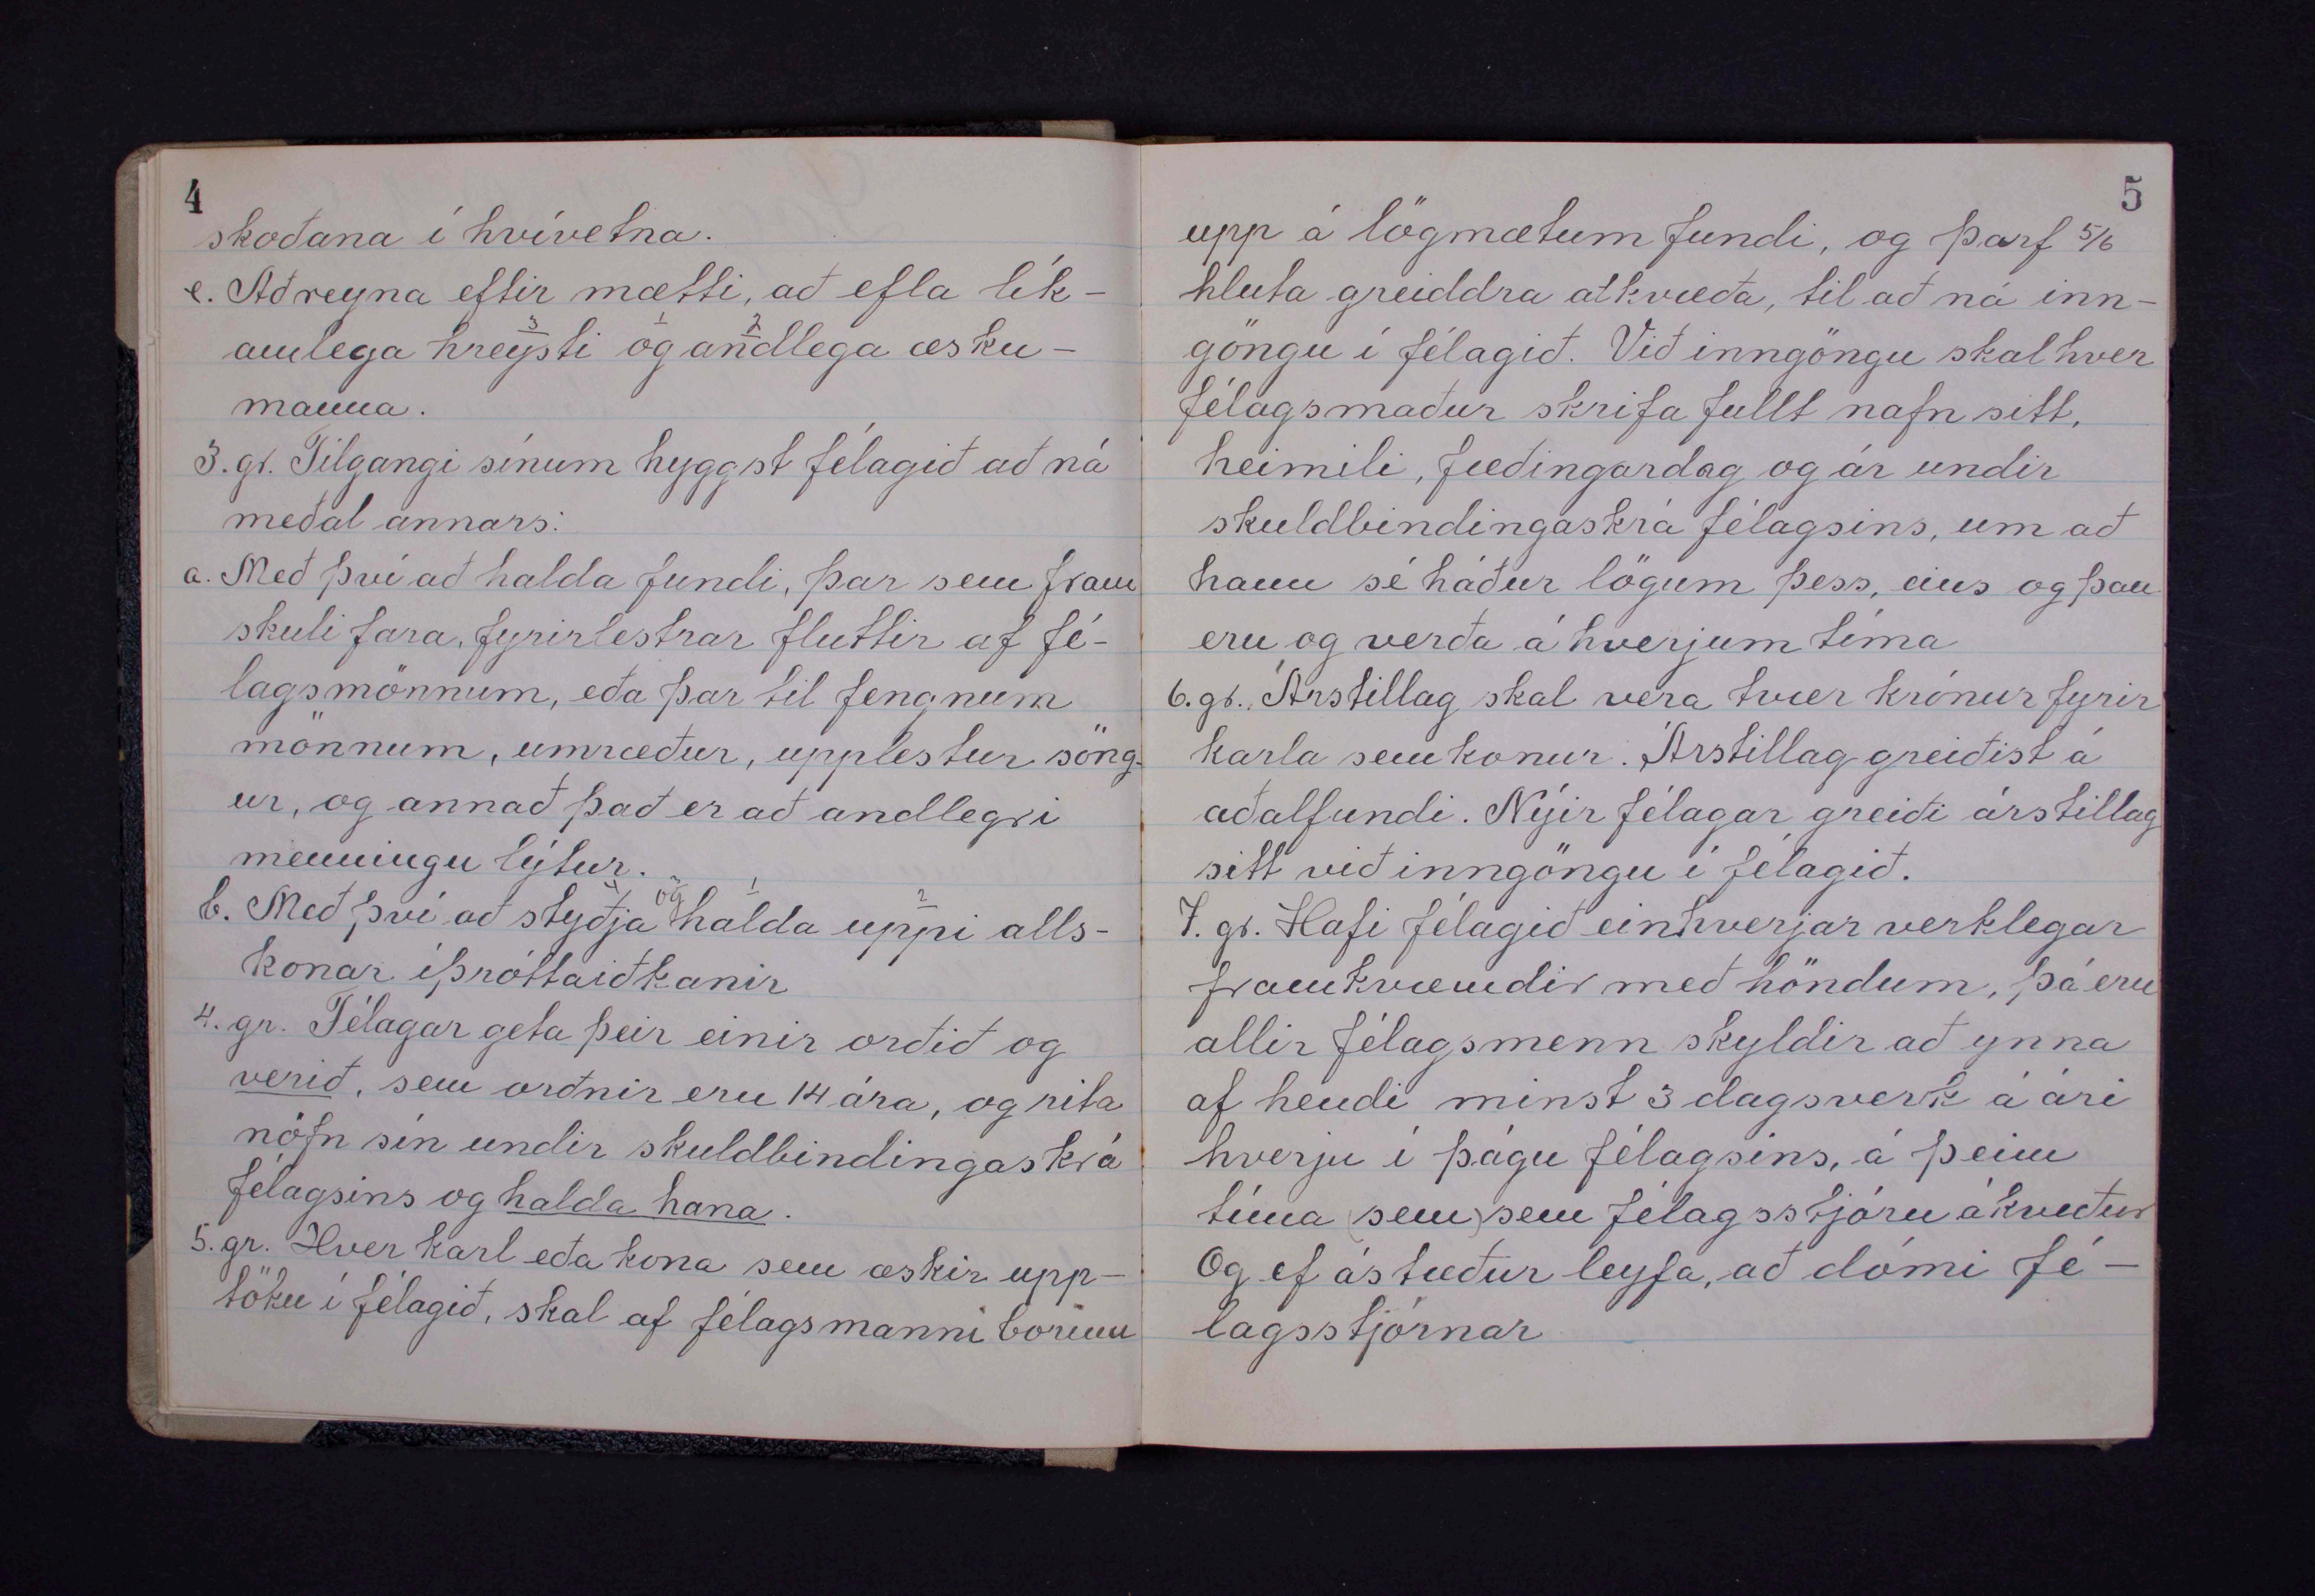 4
skoðana í hvívetna.
e. Að reyna eftir mætti, að efla lík-
3 1 2
amlega hreysti og andlega æsku-
manna.
3. gr. Tilgangi sínum hyggst félagið að ná
meðal annars:
a. Með því að halda fundi, þar sem fram
skuli fara, fyrirlestrar fluttir af fé-
lagsmönnum, eða þar til fengnum
mönnum, umræður, upplestur söng-
ur, og annað það er að andlegri
menningu lýtur.
og 1 2
b. Með því að styðja halda uppi alls-
konar íþróttaiðkanir
4. gr. Félagar geta þeir einir orðið og
verið, sem orðnir eru 14 ára, og rita
nöfn sín undir skuldbindingaskrá
félagsins og halda hana.
5. gr. Hver karl eða kona sem æskir upp-
töku í félagið, skal af félagsmanni borinn
5
upp á lögmætum fundi, og þarf 5/6
hluta greiddra atkvæða, til að ná inn-
göngu í félagið. Við inngöngu skal hver
félagsmaður skrifa fullt nafn sitt,
heimili, fæðingardag og ár undir
skuldbindingaskrá félagsins, um að
hann sé háður lögum þess, eins og þau
eru og verða á hverjum tíma
6. gr. Árstillag skal vera tvær krónur fyrir
karla sem konur. Árstillag greiðist á
aðalfundi. Nýir félagar greiði árstillag
sitt við inngöngu í félagið.
7. gr. Hafi félagið einhverjar verklegar
framkvæmdir með höndum, þá eru
allir félagsmenn skyldir að ynna
af hendi minst 3 dagsverk á ári
hverju í þágu félagsins, á þeim
tíma (sem) sem félagsstjórn ákveður
Og ef ástæður leyfa, að dómi fé-
lagsstjórnar